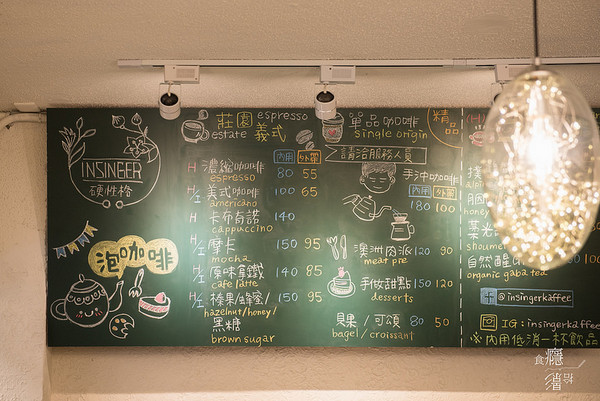 INSINEER
硬性格
泡咖啡
莊園 espresso
estate 義式
內用 外帶
H 濃縮咖啡 80 55
espresso
H/I 義式咖啡 100 65
americano
H 卡布奇諾 140
cappuccino
H/I 摩卡 150 95
mocha
H/I 原味拿鐵 140 85
cafe latte
H/I 榛果/蜂蜜/ 150 95
hazelnut/honey/
黑糖
brown sugar
單品咖啡
single origin
精品
請洽服務人員
手沖咖啡
內用 外帶
180 100
澳洲肉派 120 90
meat pie
手做甜點 150 120
desserts
貝果/可頌 80 50
bagel/croissant
honey
葉光
自然醒
organic gaba tea
100
@insingerkaffee
IG:insingerkaffee
※內用低消一杯飲品
食癮